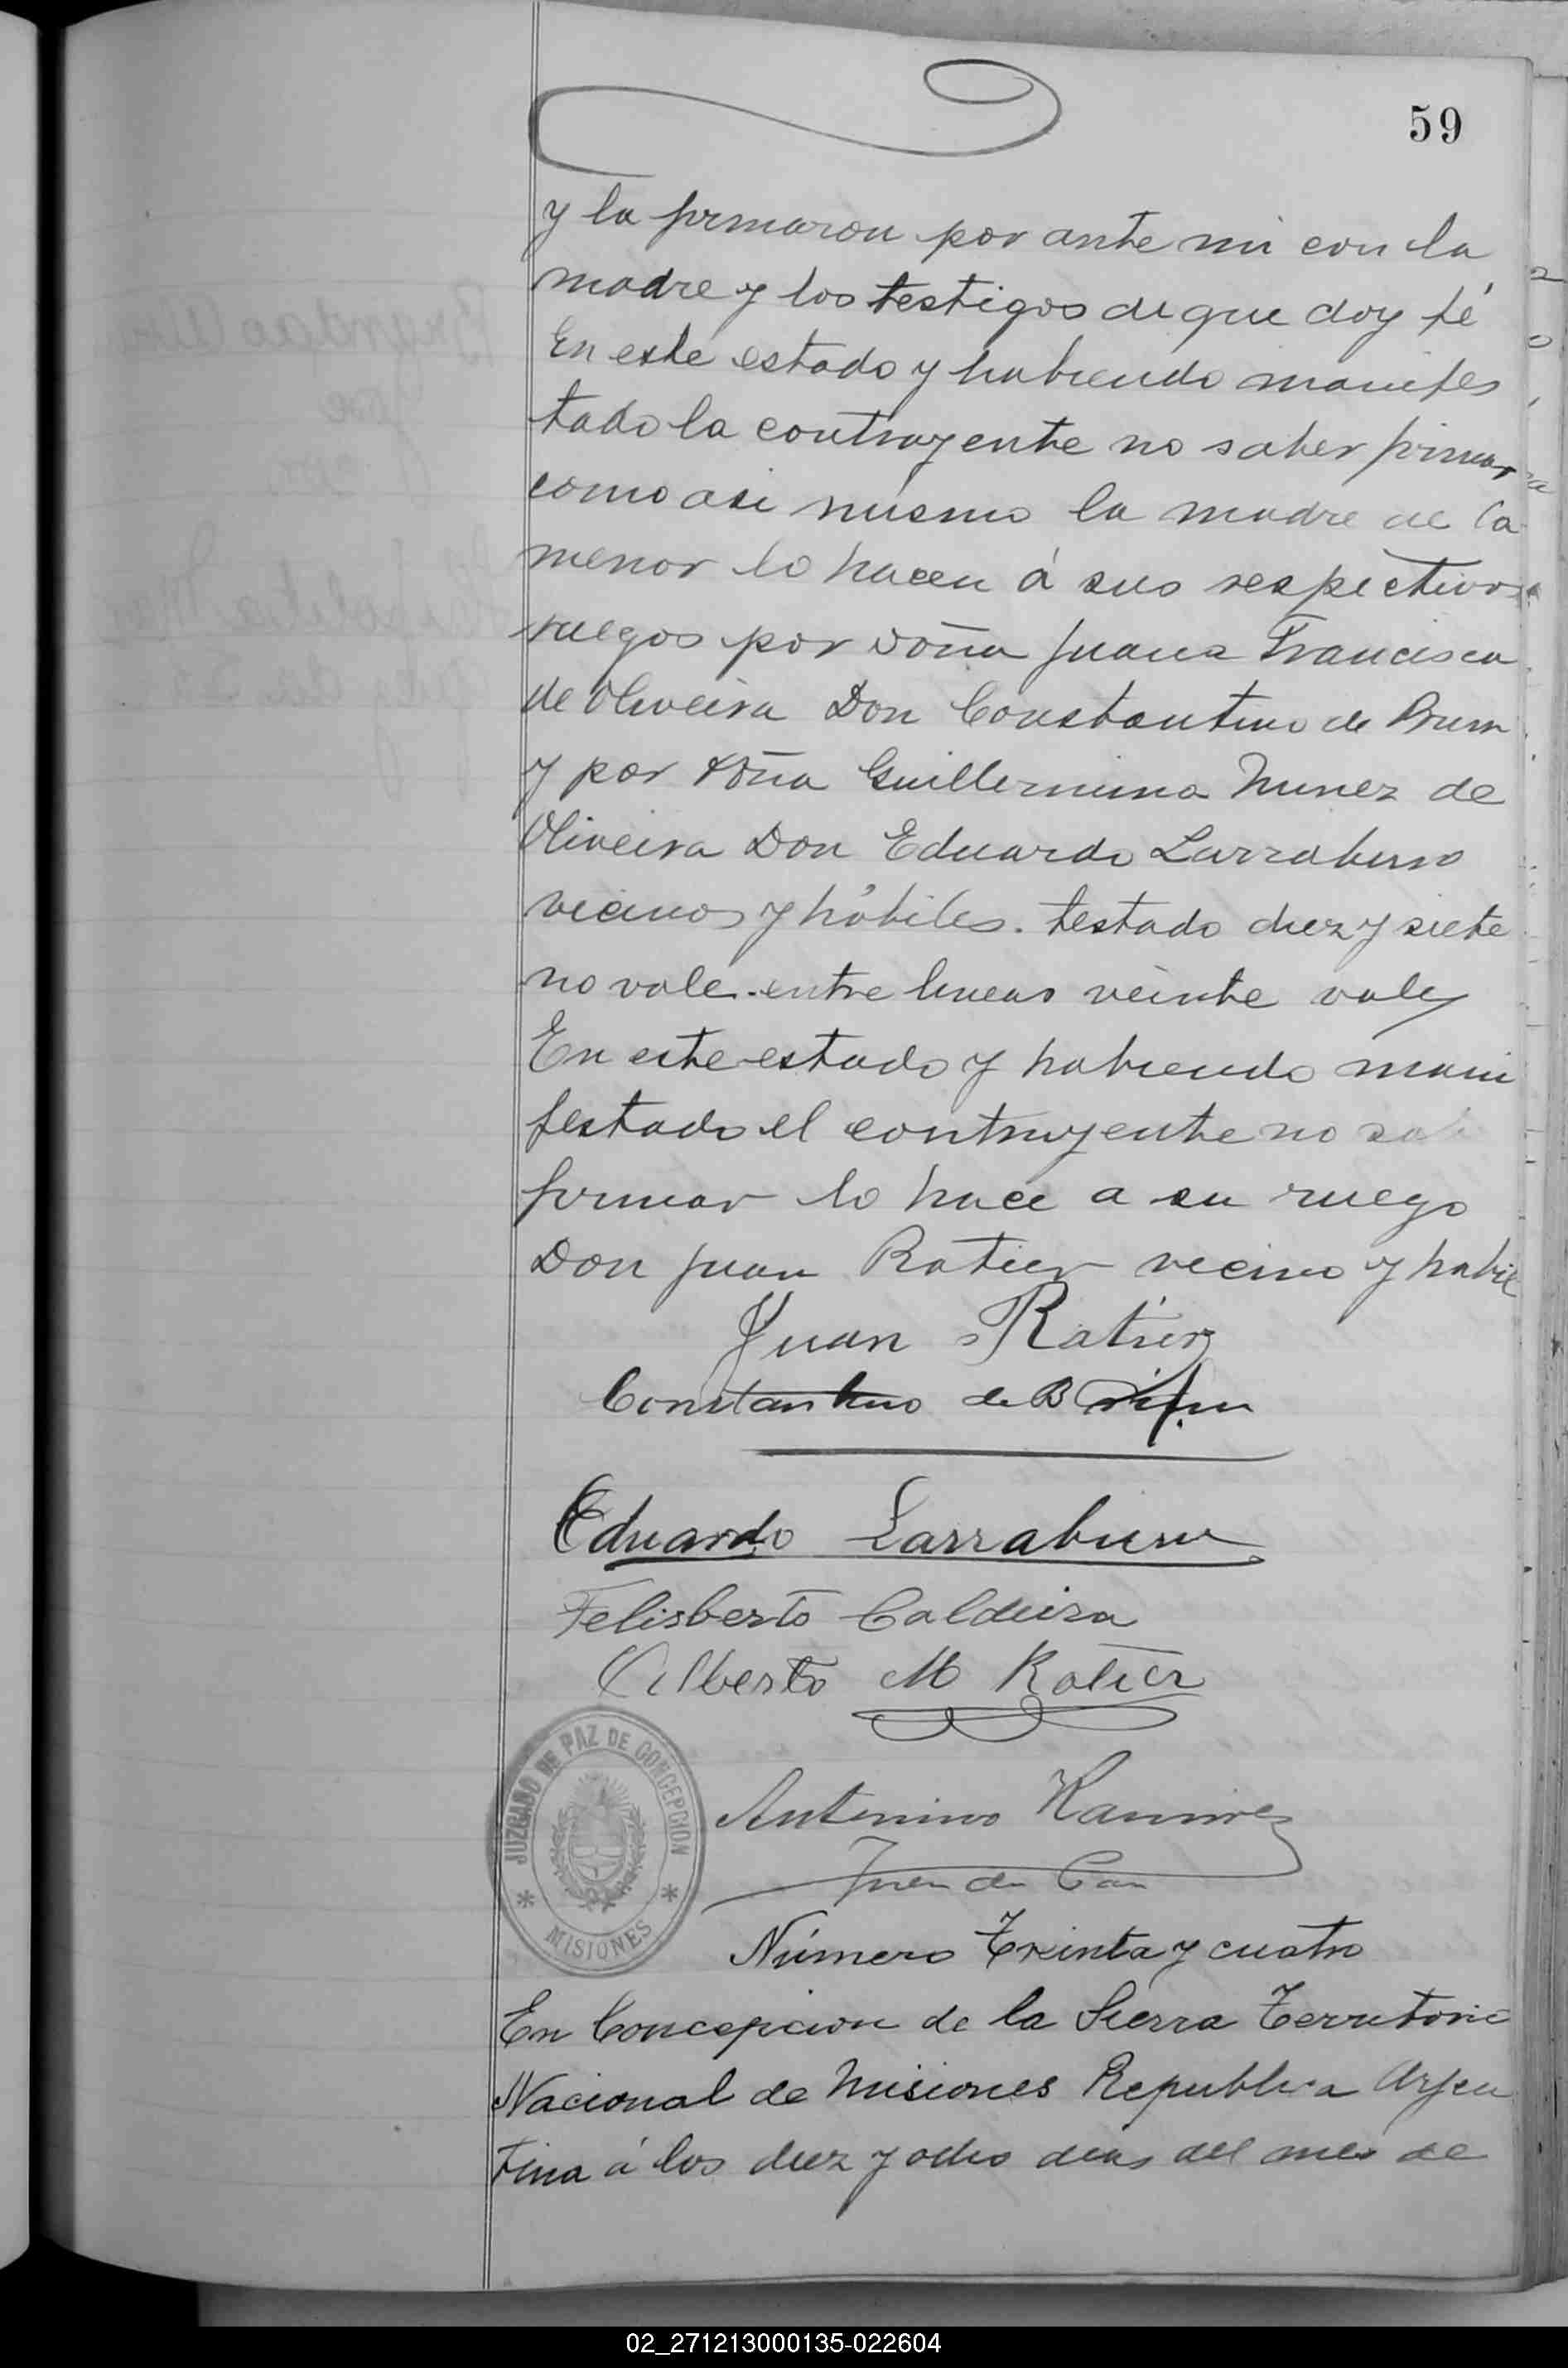 59
y la firmaron por ante mi con la
madre y los testigos de que doy fé
En este estado y habiendo manifes
tado la contrayente no saber firmar
como asi mismo la madre de la
menor lo hacen á sus respectivos
ruegos por doña Juana Francisca
de Oliveira Don Constantino de Brum
y por doña Guillermina Nunez de
Oliveira Don Eduardo Larraburu
vecinos y hábiles. testado diez y siete
no vale. entre lineas veinte vale
En este estado y habiendo mani
festado el contrayente no sa
firmar lo hace a su ruego
Don Juan Ratier vecino y habil
Juan Ratier
Constantino de
Eduardo Larraburu
Felisberto Caldeira
Alberto M Ratier
JUZGADO DE PAZ DE CONCEPCION
* MISIONES *
Antonino Ramirez
Juez de Paz
Número Treinta y cuatro
En Concepcion de la Sierra Territorio
Nacional de Misiones Republica Arjen
tina á los diez y ocho dias del mes de
02_271213000135-022604